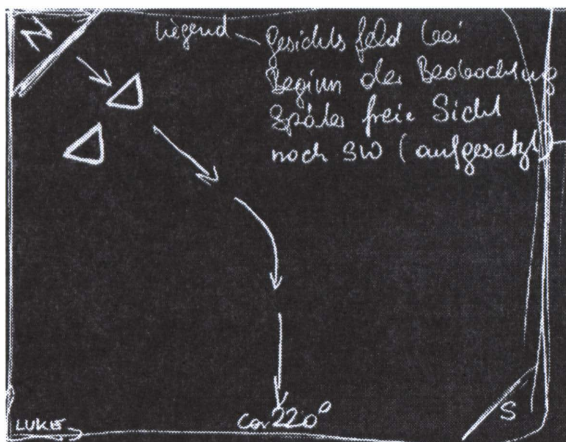 N
liegend – Gesichtsfeld bei
Beginn der Beobachtung
Später freie Sicht
nach SW (aufgesetzt)
LUKE
ca 220°
S